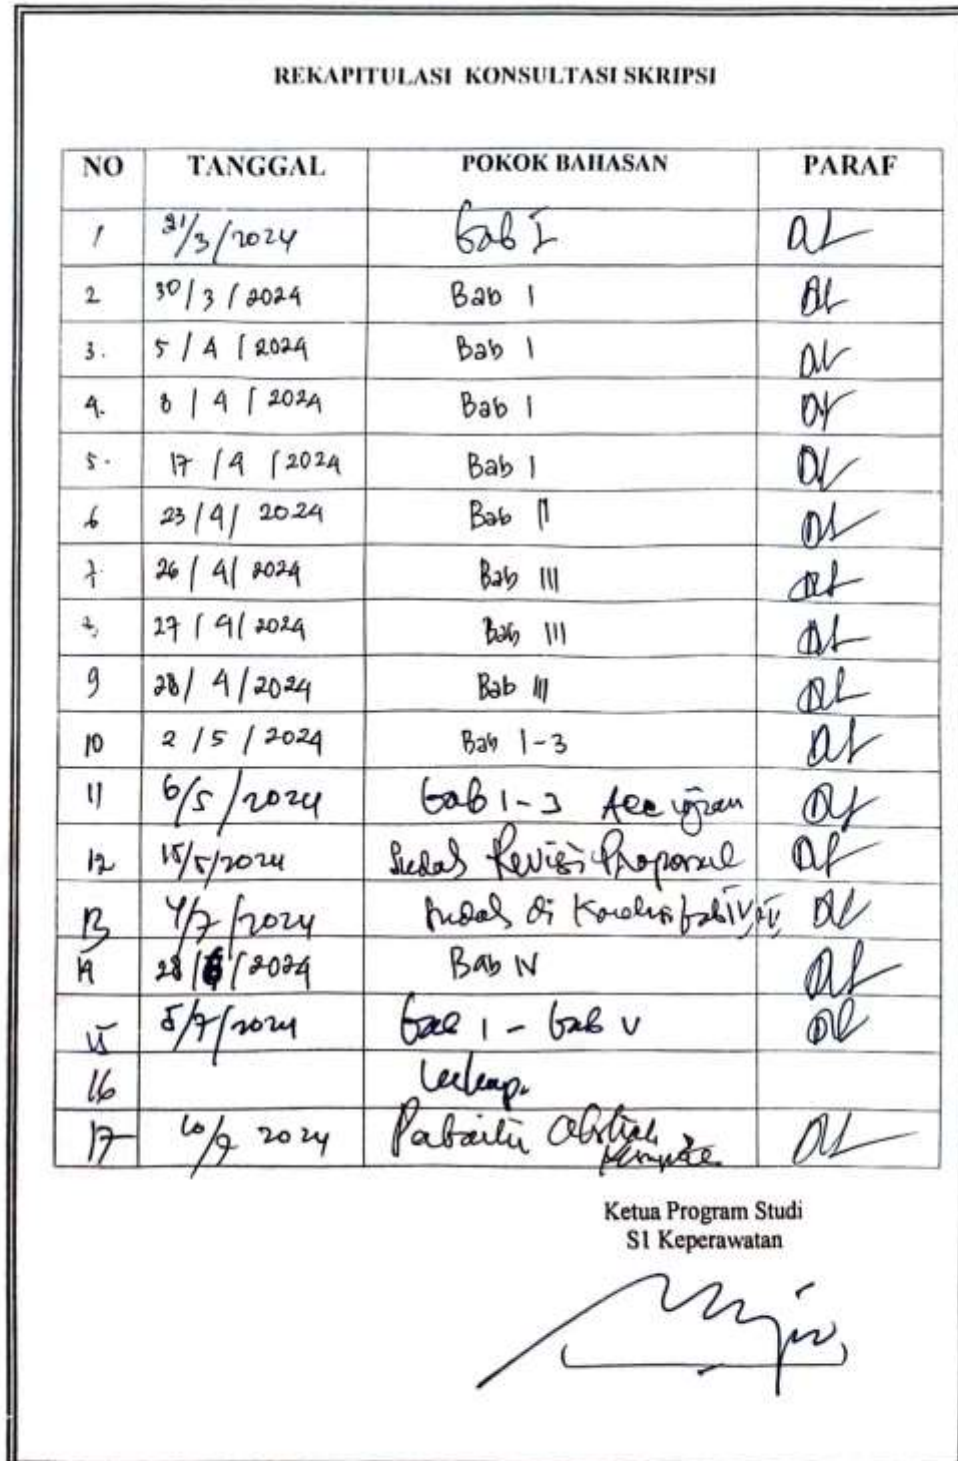 REKAPITULASI KONSULTASI SKRIPSI
NO TANGGAL POKOK BAHASAN PARAF
1 21/3/2024 Bab I
2 30/3/2024 Bab I
3. 5/4/2024 Bab I
4. 8/4/2024 Bab I
5. 17/4/2024 Bab I
6 23/4/2024 Bab II
7. 26/4/2024 Bab III
8. 27/4/2024 Bab III
9 28/4/2024 Bab III
10 2/5/2024 Bab 1-3
11 6/5/2024 Bab 1-3 Acc ujian
12 15/5/2024 Sudah Revisi Proposal
13 4/7/2024 Sudah di
14 28/6/2024 Bab IV
15 5/7/2024 Bab 1 - Bab V
16
17 2024 Abstrak
Ketua Program Studi
S1 Keperawatan